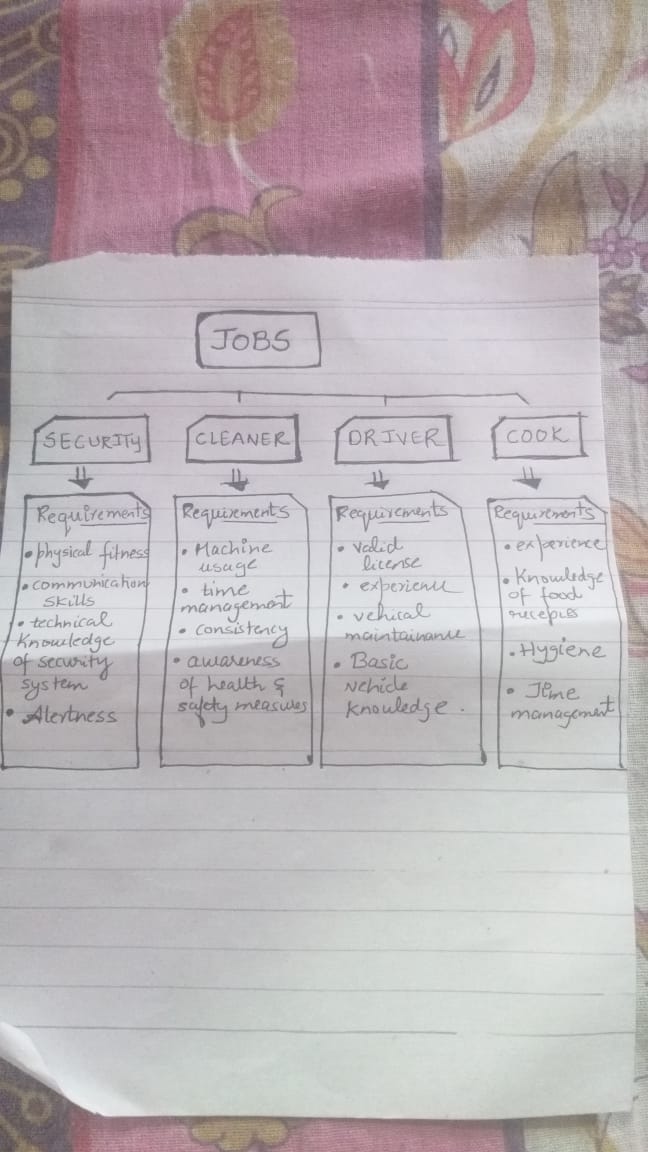 JOBS
SECURITY
CLEANER
DRIVER
COOK
Requirements
• physical fitness
• communication
skills
• technical
Knowledge
of security
system
• Alertness
Requirements
• Machine
usage
• time
management
• consistency
• awareness
of health &
safety measures
Requirements
• valid
license
• experience
• vehical
maintainance
• Basic
vehicle
knowledge.
Requirements
• experience
• Knowledge
of food
recepies
• Hygiene
• Time
management